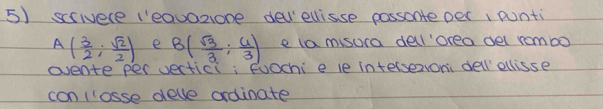 5) scrivere l'equazione dell'ellisse passante per i punti
A(3/2; √2/2) e B(√3/3; 4/3) e la misura dell'area del rombo
avente per vertici i fuochi e le intersezioni dell'ellisse
con l'asse delle ordinate